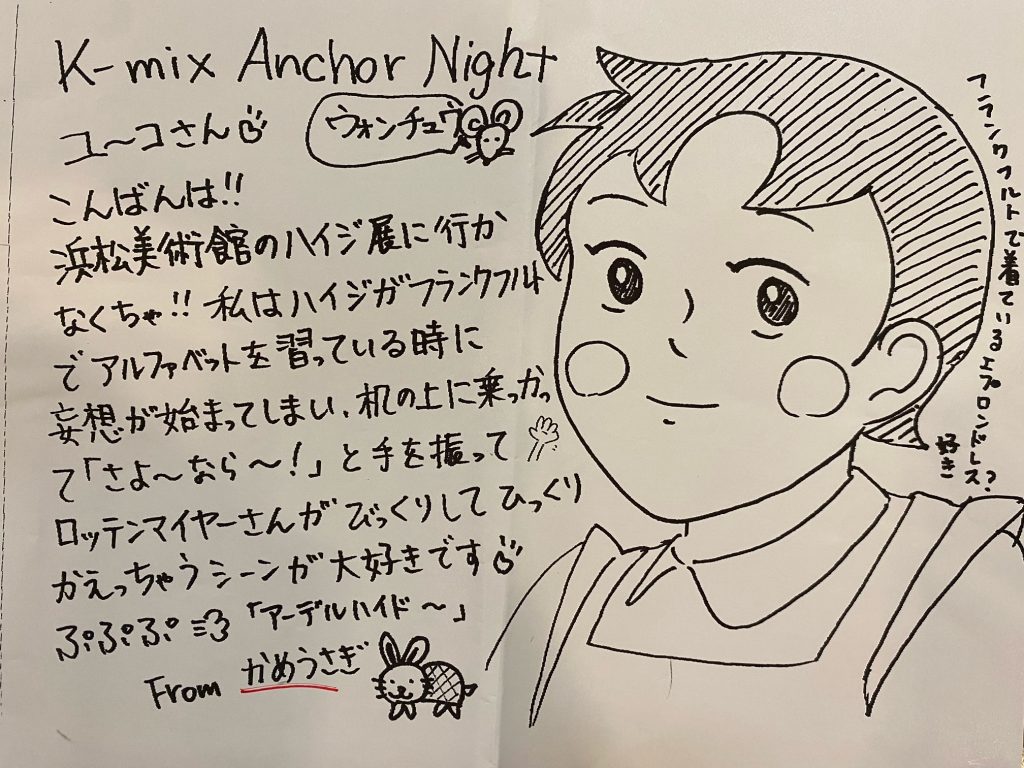 K-mix Anchor Night
ユ〜コさん
ウォンチュウ
こんばんは!!
浜松美術館のハイジ展に行か
なくちゃ!! 私はハイジがフランクフルト
でアルファベットを習っている時に
妄想が始まってしまい、机の上に乗っかっ
て「さよ〜なら〜!」と手を振って
ロッテンマイヤーさんがびっくりしてひっくり
かえっちゃうシーンが大好きです
ぷぷぷ 「アーデルハイド〜」
From かめうさぎ
フランクフルトで着ているエプロンドレス?
好き